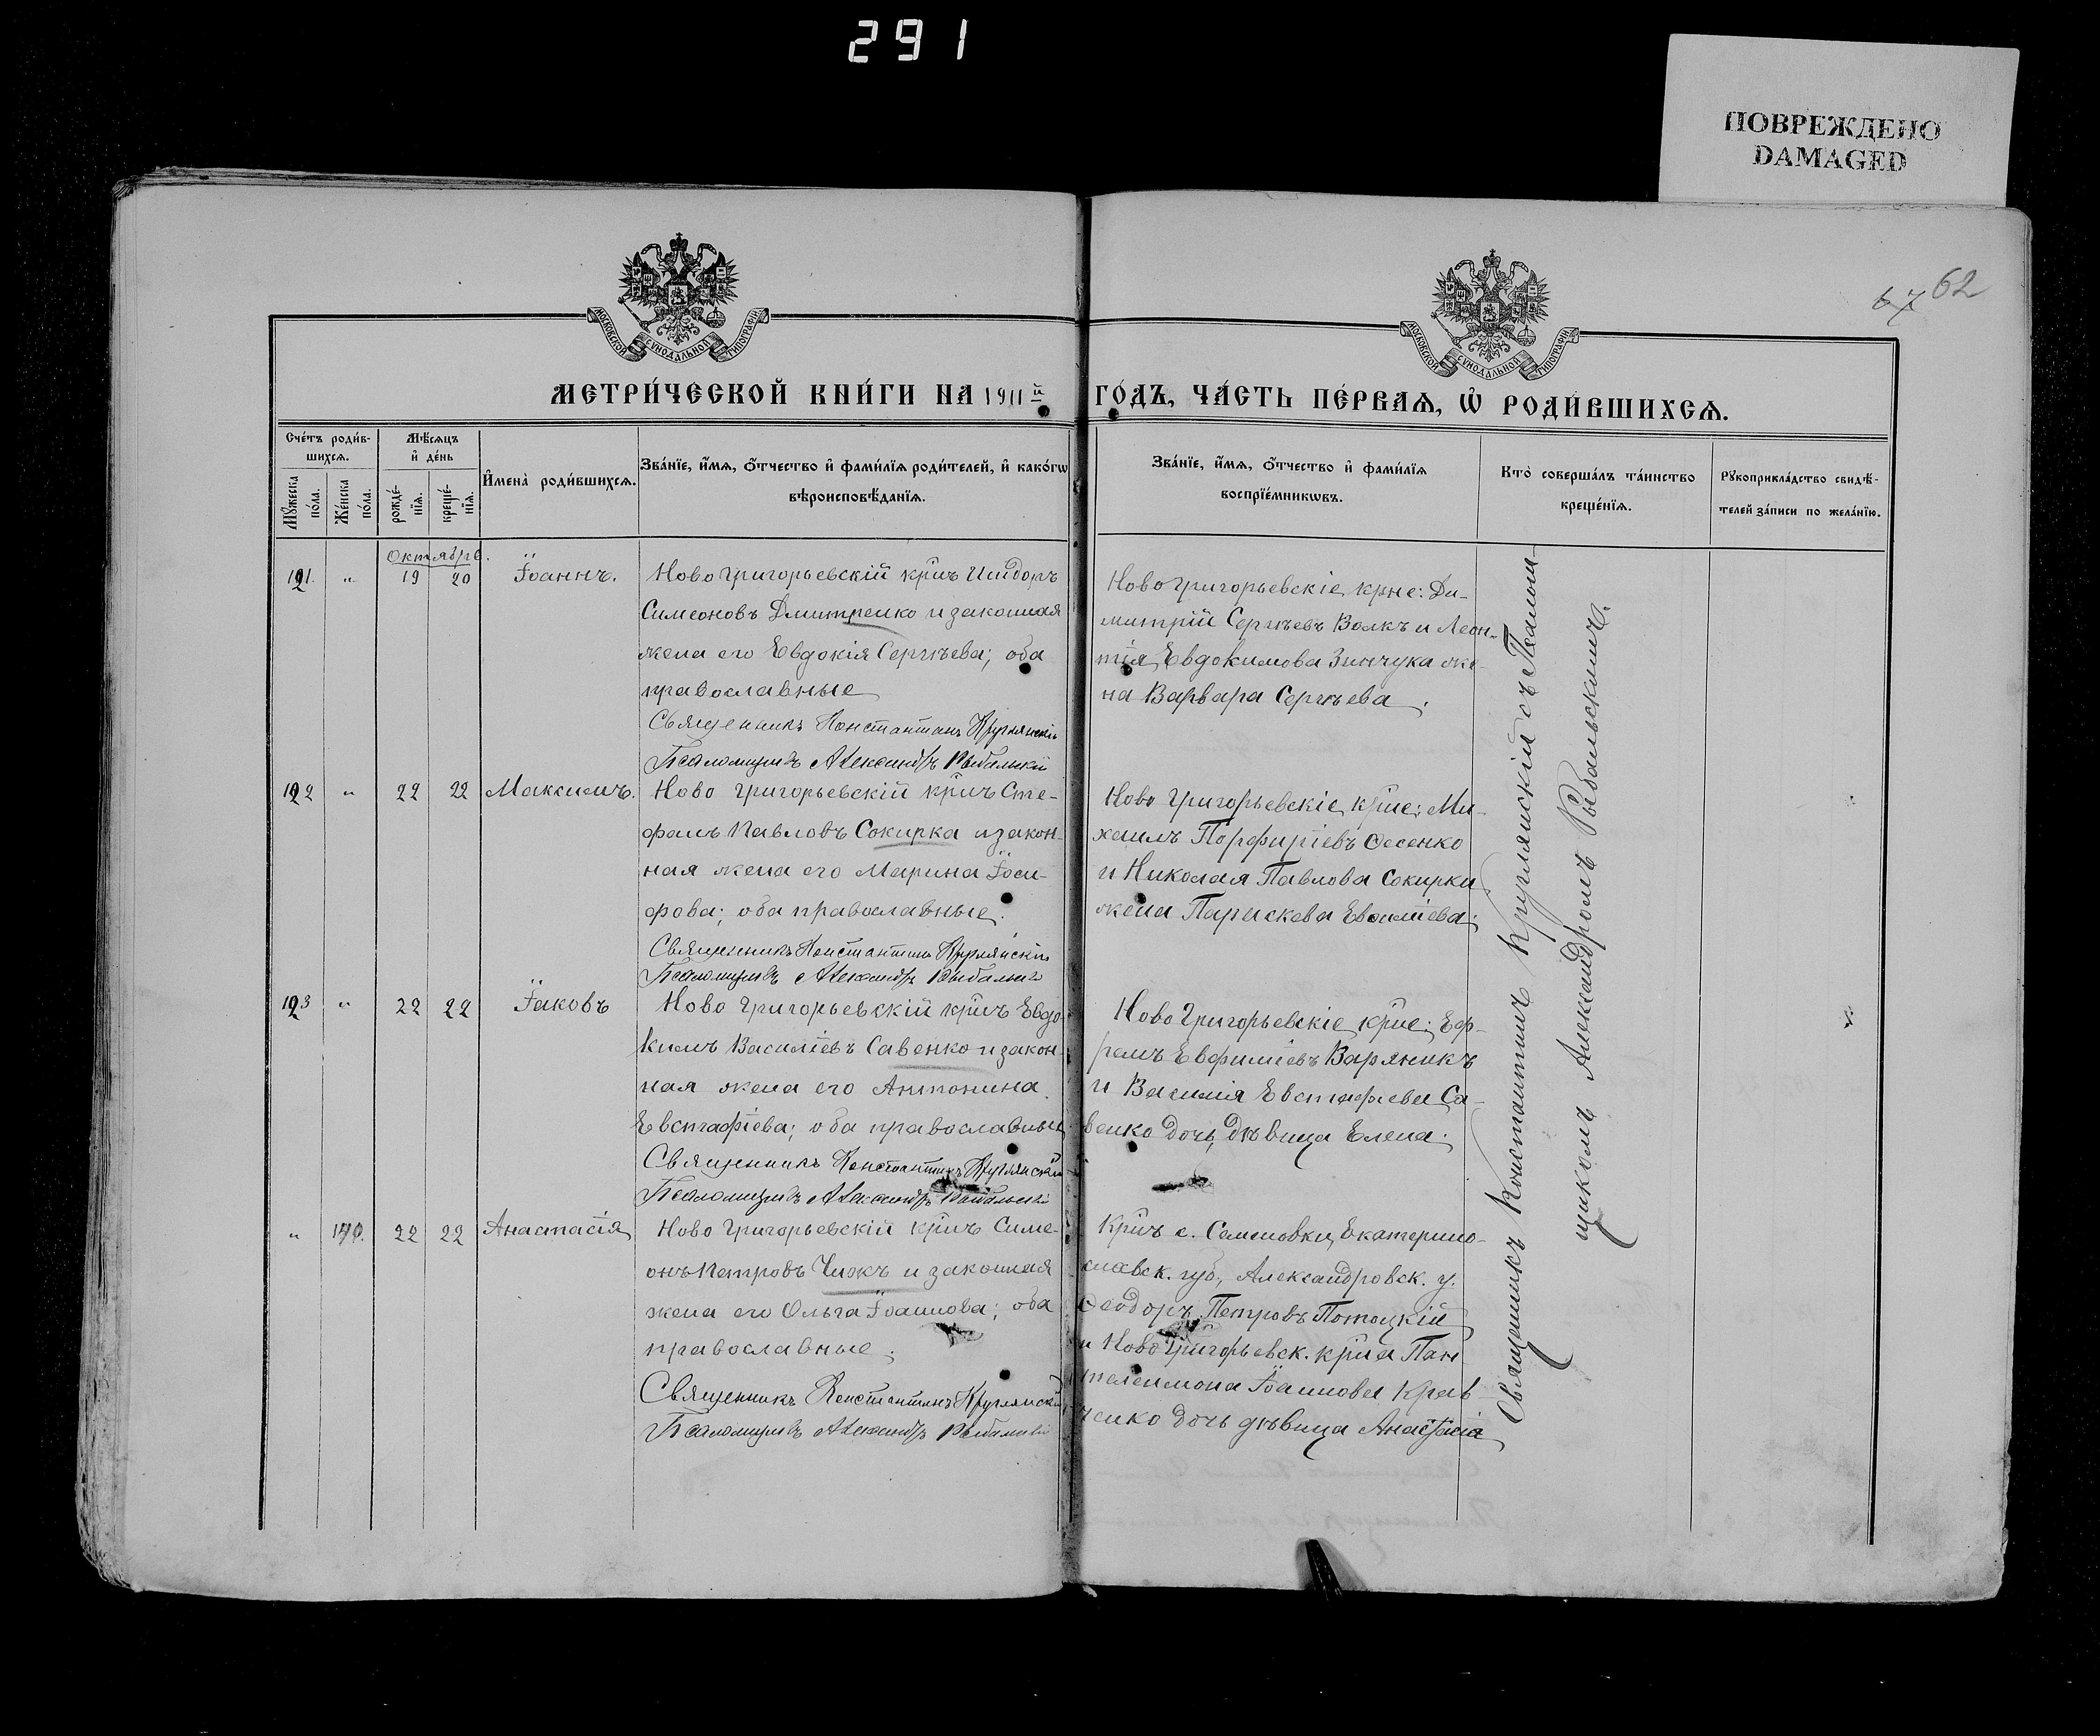 291
ПОВРЕЖДЕНО
DAMAGED
67 62
МОСКОВСКОЙ СУНОДАЛЬНОЙ ТИПОГРАФІИ
МОСКОВСКОЙ СУНОДАЛЬНОЙ ТИПОГРАФІИ
МЕТРИ́ЧЕСКОЙ КНИ́ГИ НА 1911й ГО́ДЪ, ЧА́СТЬ ПЕ́РВАѦ, Ѡ҆ РОДИ́ВШИХСѦ.
Сче́тъ роди́в-
шихсѧ.
Мꙋ́жеска по́ла.
Же́нска по́ла.
Мѣ́сѧцъ
и҆ де́нь
рожде́-
нїѧ.
креще́-
нїѧ.
И҆мена̀ роди́вшихсѧ.
Зва́нїе, и҆́мѧ, ѻ҆́тчество и҆ фами́лїѧ роди́телей, и҆ како́гѡ
вѣроисповѣ́данїѧ.
Зва́нїе, и҆́мѧ, ѻ҆́тчество и҆ фами́лїѧ
воспрїе́мникѡвъ.
Кто̀ соверша́лъ та́инство
креще́нїѧ.
Рꙋкоприкла́дство свидѣ́-
телей за́писи по жела́нїю.
Октябрь.
121. " 19 20 Іоаннъ.
Ново Григорьевскій крнъ Исидоръ
Симеоновъ Дмитренко и законная
жена его Евдокія Сергѣева; оба
православные
Священникъ Константинъ Круглянскій
Псаломщикъ Александръ Рыбальскій
Ново Григорьевскіе крне: Ди-
митрій Сергѣевъ Волкъ и Леон-
тія Евдокимова Зинчука же-
на Варвара Сергѣева.
122 " 22 22 Максимъ.
Ново Григорьевскій крнъ Сте-
фанъ Павловъ Сокирка и закон-
ная жена его Марина Іоси-
фова; оба православные.
Священникъ Константинъ Круглянскій
Псаломщикъ Александръ Рыбальскій
Ново Григорьевскіе крне: Ми-
хаилъ Порфиріевъ Ѳесенко
и Николая Павлова Сокирки
жена Параскева Евсиліева.
123 " 22 22 Іаковъ
Ново Григорьевскій крнъ Евдо-
кимъ Василіевъ Савенко и закон-
ная жена его Антонина
Евстафіева; оба православные
Священникъ Константинъ Круглянскій
Псаломщикъ Александръ Рыбальскій
Ново Григорьевскіе крне: Еф-
ремъ Евфиміевъ Варяникъ
и Василія Евстафіева Са-
венко дочь дѣвица Елена.
" 22 22 Анастасія
Ново Григорьевскій крнъ Симе-
онъ Петровъ Чижъ и законная
жена его Ольга Іоаннова; оба
православные.
Священникъ Константинъ Круглянскій
Псаломщикъ Александръ Рыбальскій
Крнъ с. Семеновки, Екатерино-
славск. губ., Александровск. у.
Ѳеодоръ Петровъ Потоцкій
и Ново Григорьевск. крна Пан
телеимона Іоаннова Крав
ченко дочь дѣвица Анастасія
Священникъ Константинъ Круглянскій съ Псалом-
щикомъ Александромъ Рыбальскимъ.